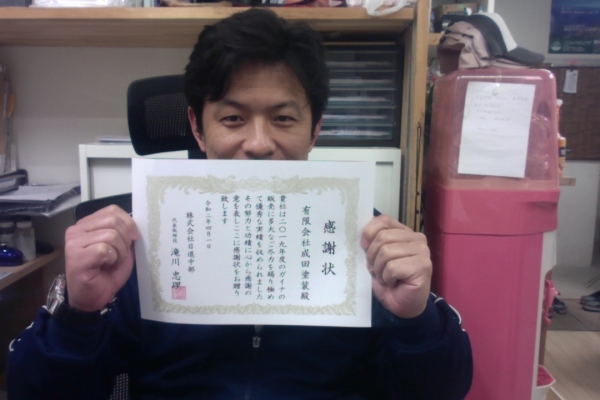 感謝状
有限会社成田塗装殿
貴社は二〇一九年度のガイナの
販売に多大なご尽力を賜り極め
て優秀な実績を収められました
その努力と功績に心から感謝の
意を表しここに感謝状をお贈り
致します
令和二年四月一日
株式会社日進中部
代表取締役
滝川忠